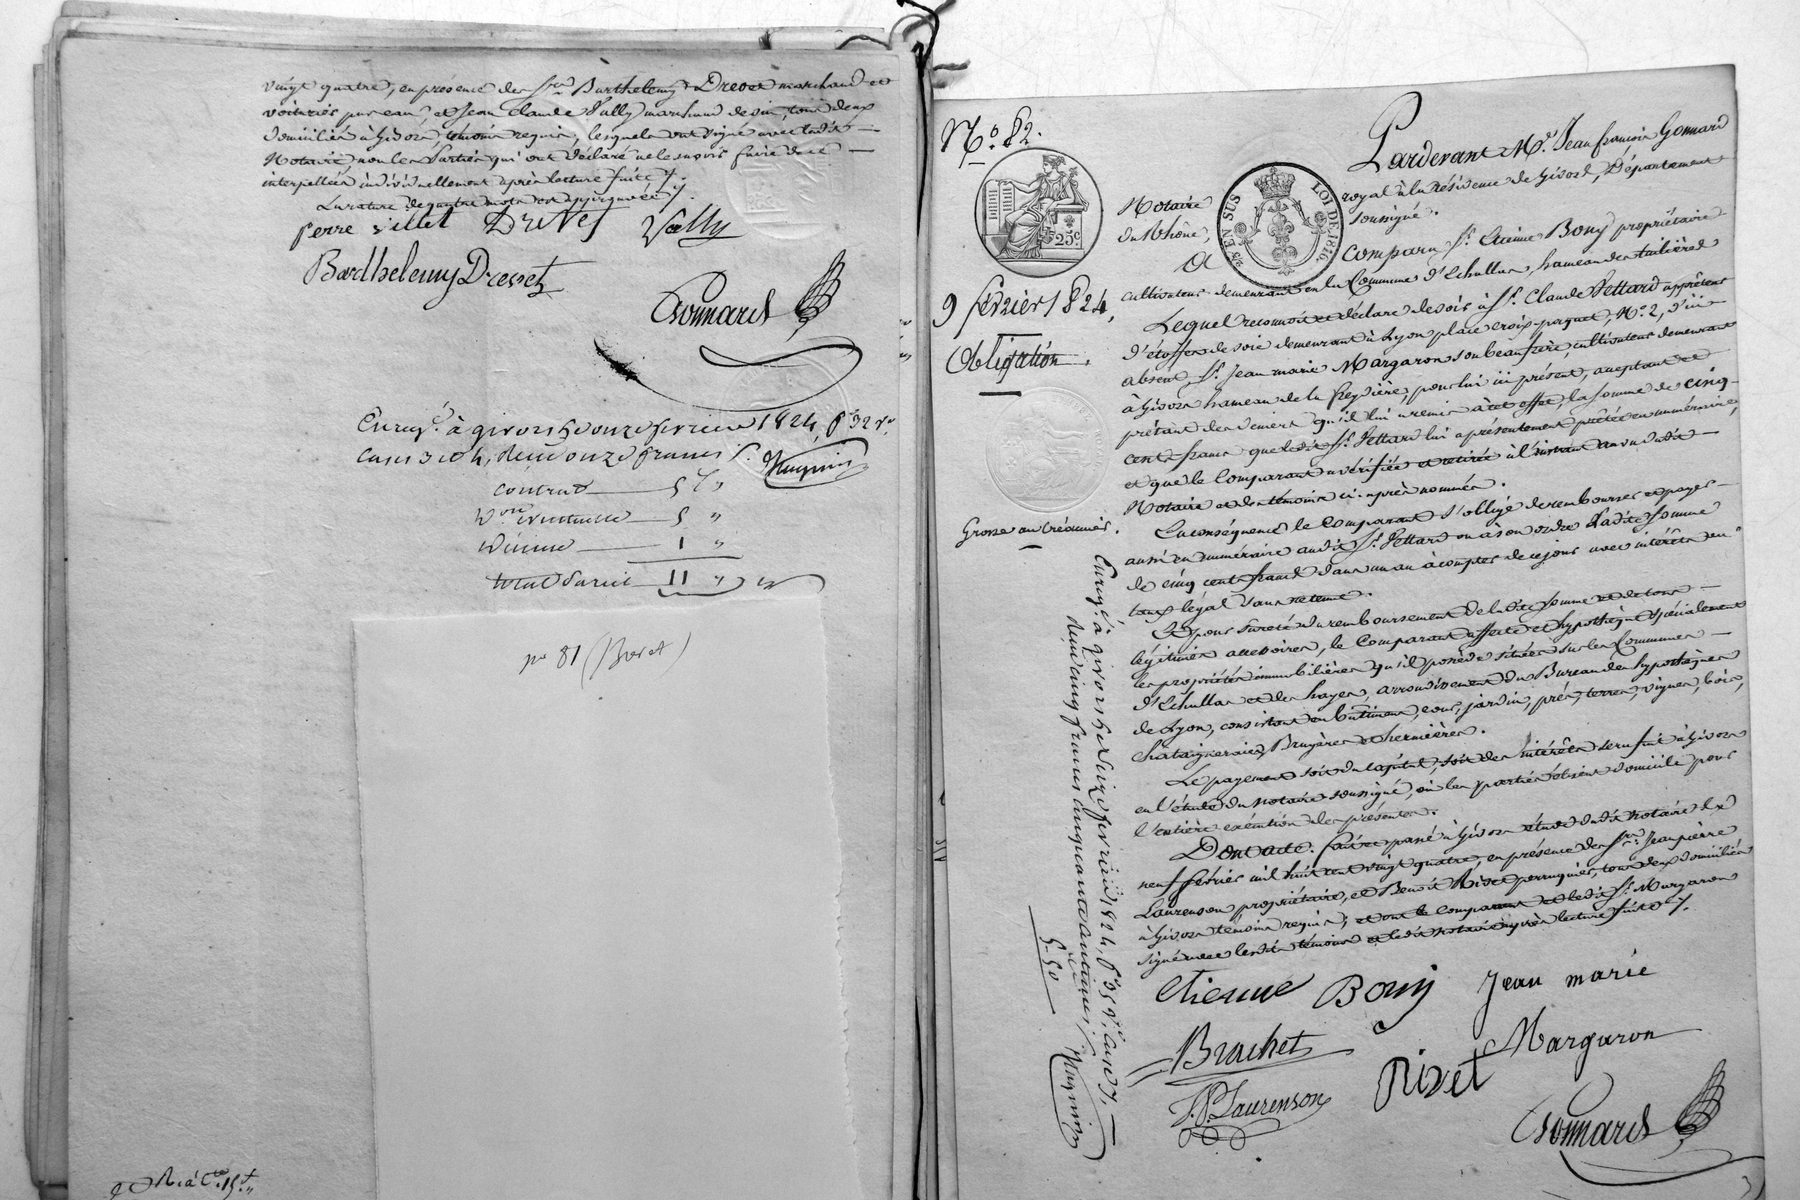 vingt quatre, en présence des Srs. Barthelemy Drevet marchand et
voiturier par eau, et Jean Claude Vally marchand de vin, tous deux
domiciliés à Givors témoins requis, lesquels ont signé avec ledit
Notaire non les Parties qui ont déclaré ne le savoir faire de ce
interpellées individuellement après lecture faite ./.
La rature de quatre mots est approuvée ./.
Drevet Vally
Barthelemy Drevet
Gonnard
Enregé. à givors le onze fevrier 1824, fo. 32 vo.
cases 3 et 4, reçu onze francs
contrat 5 "
5 "
décime 1 "
total 11 "
no 81
No. 82.
9 février 1824,
Obligation.
Grosse au Créancier.
25c
25 EN SUS LOI DE 1816.
Pardevant Me. Jean françois Gonnard
Notaire royal à la résidence de Givors, Département
du Rhône, soussigné.
A comparu Sr. Etienne Bony propriétaire
cultivateur demeurant en la Commune d'Echallas hameau des tuilières
Lequel reconnoit et déclare devoir à Sr. Claude Pettard apprêteur
d'étoffes de soie demeurant à Lyon place croix paquet, No. 2, d'ici
absent, Sr. Jean marie Margaron son beau frère, cultivateur demeurant
à Givors hameau de la freydière, pour lui ici présent, acceptant et
prêtant des deniers qu'il lui a remis à cet effet, la somme de cinq
cents francs que ledit Sr. Pettard lui a présentement prêtée en numéraire,
et que le Comparant a vérifiée et retirée à l'instant au vu dudit
Notaire et des témoins ci-après nommés.
En conséquence le Comparant s'oblige de rembourser et payer
aussi en numéraire audit Sr. Pettard ou à son ordre ladite somme
de cinq cents francs dans un an à compter de ce jour avec intérêts au
taux légal sans retenue.
Et pour sûreté du remboursement de ladite somme et de tous
légitimes accessoires, le Comparant affecte et hypothèque spécialement
les propriétés immobilières qu'il possède situées sur les Communes
d'Echallas et des hayes, arrondissement du Bureau des hypothèques
de Lyon, consistant en bâtiment, cour, jardin, prés, terres, vignes, bois,
Chataigneraies, Bruyères et hermières.
Le payement soit du capital, soit des intérêts sera fait à Givors
en l'étude du notaire soussigné, où les parties élisent domicile pour
l'entière exécution des présentes.
Dont acte. fait et passé à Givors étude dudit notaire le
neuf février mil huit cent vingt quatre, en présence des Srs. Jean pierre
Laurenson propriétaire, et Benoit Rivet perruquier, tous deux domiciliés
à Givors témoins requis; et ont le comparant et ledit Sr. Margaron
signé avec lesdits témoins et ledit notaire après lecture faite ./.
Etienne Bony Jean marie
Margaron
Brachet Rivet
J.P. Laurenson
Gonnard
Enregé. à givors le seize fevrier 1824, fo. 35 vo. case 7,
reçu cinq francs cinquante centimes
5-50